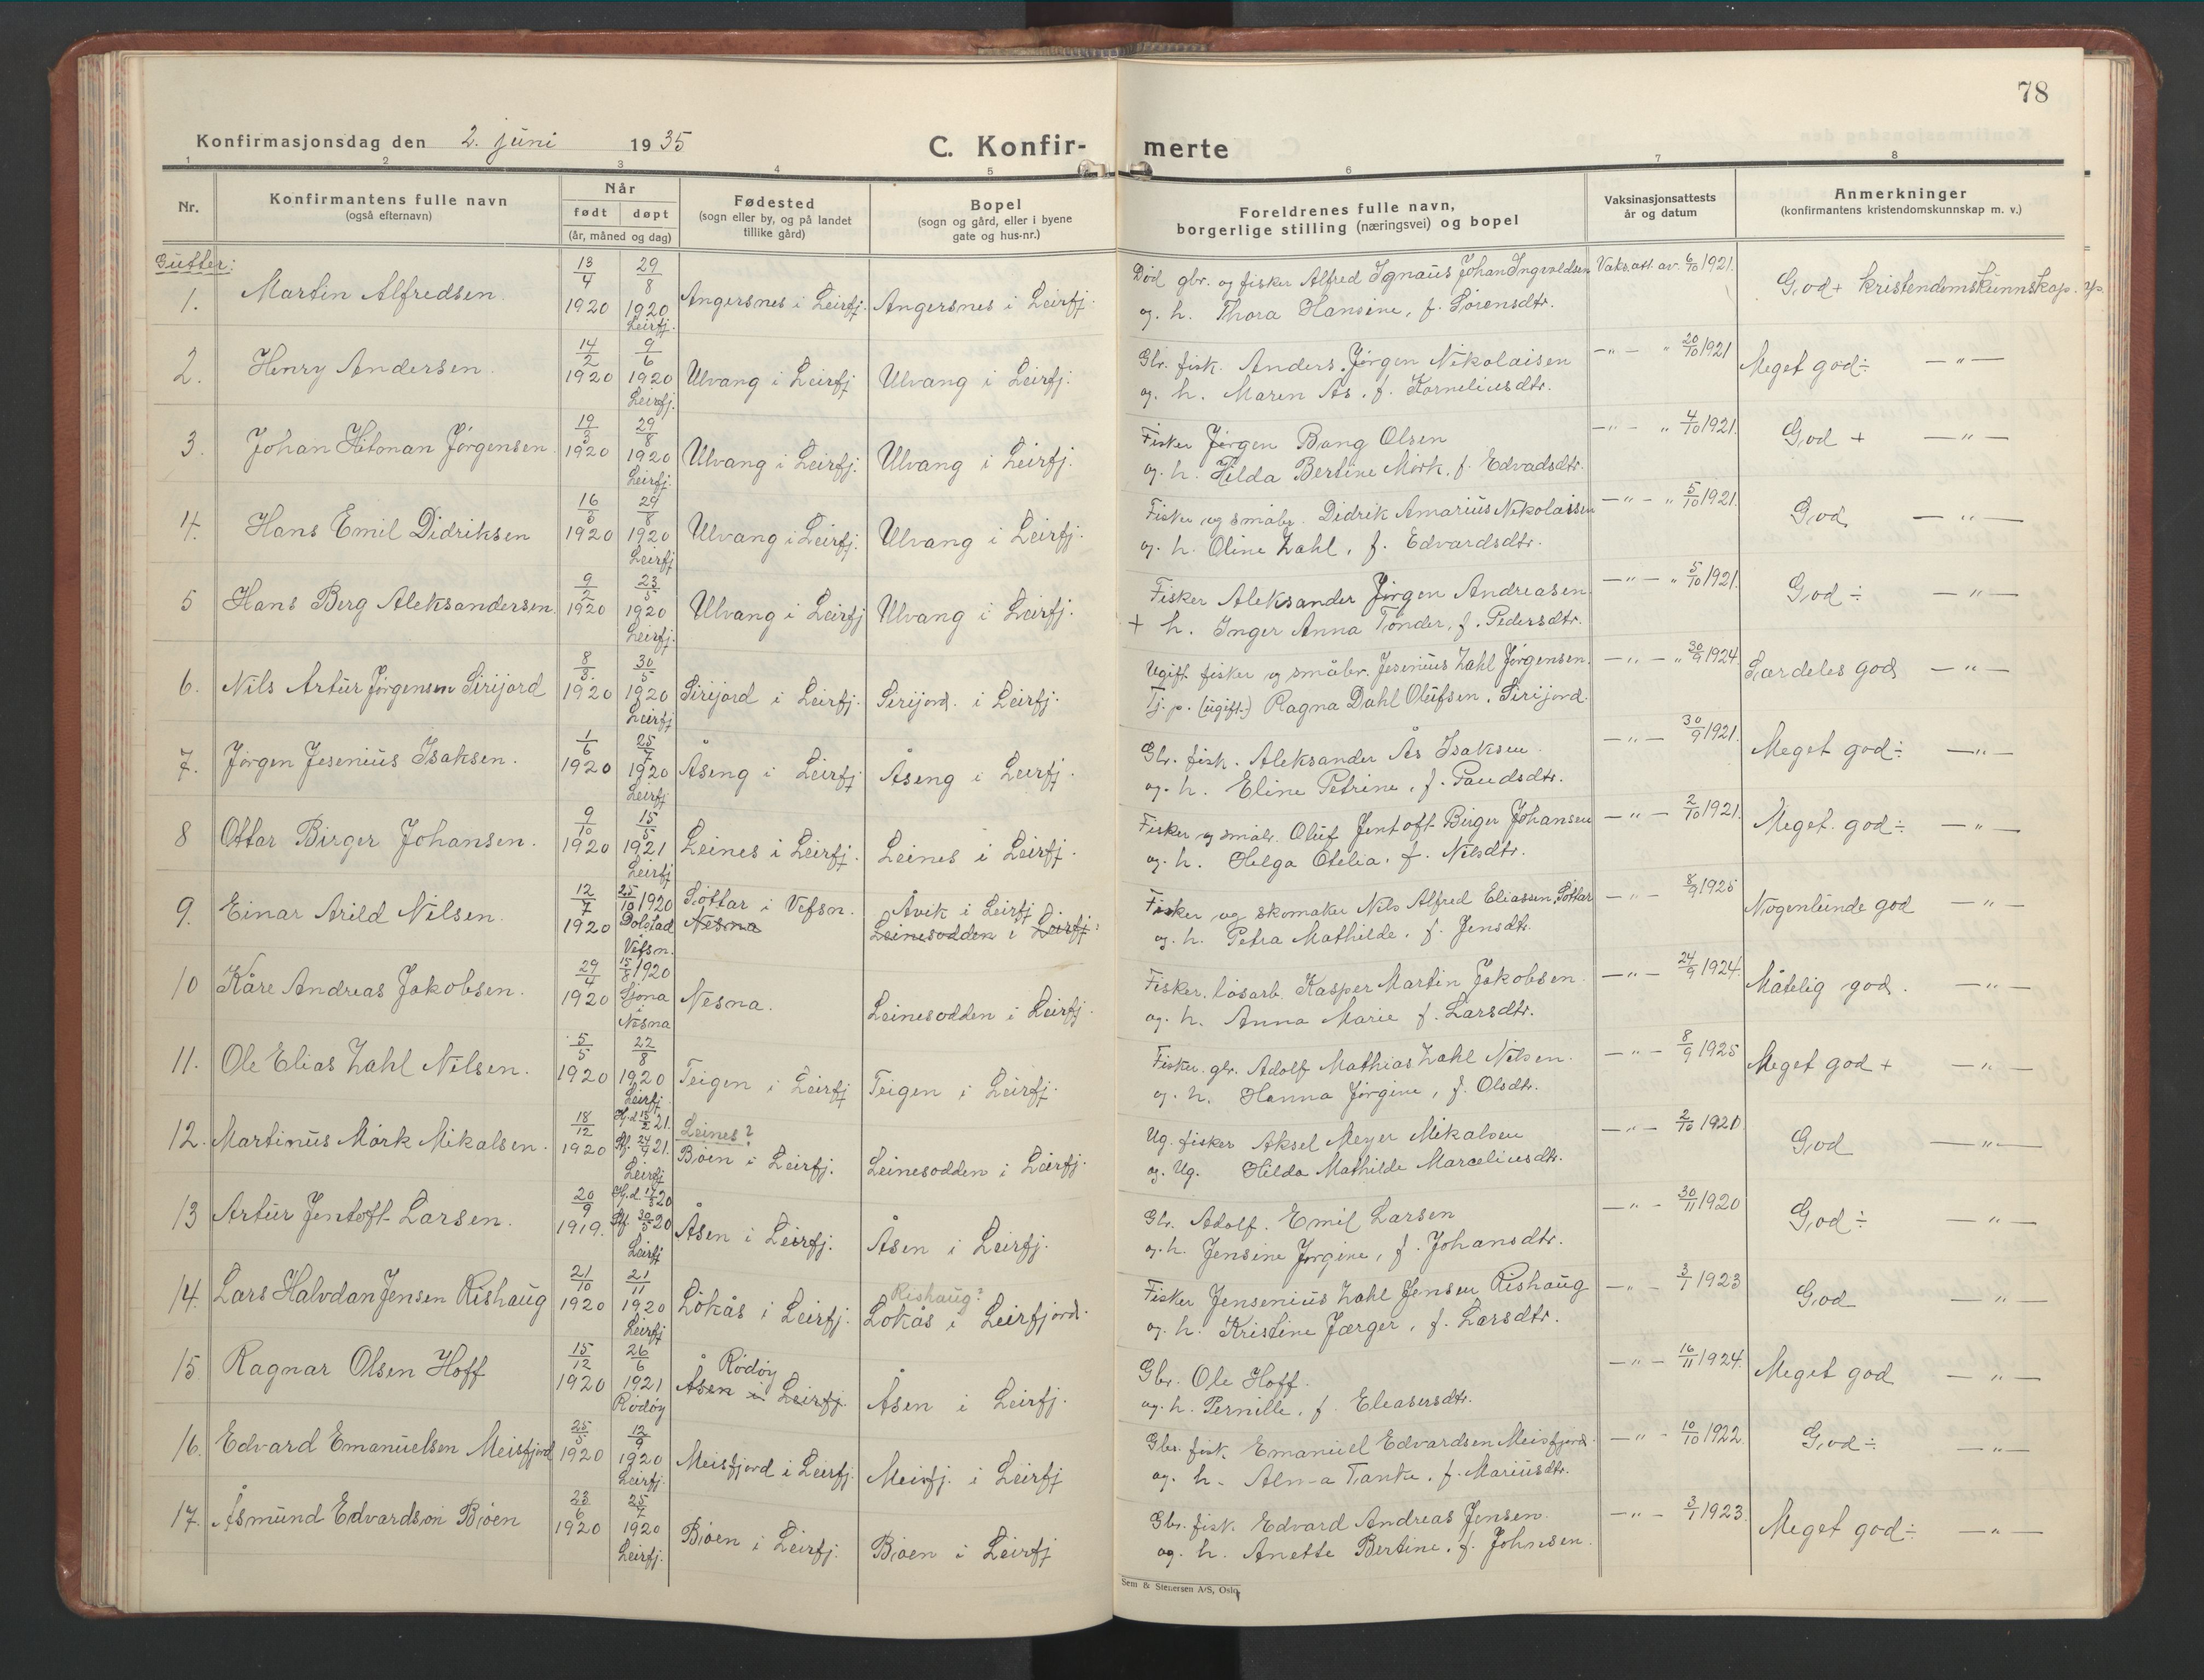 78
Konfirmasjonsdag den 2. juni 1935
C. Konfir- merte
1 2 3 4 5 6 7 8
Nr.
Konfirmantens fulle navn
(også efternavn)
Når
født døpt
(år, måned og dag)
Fødested
(sogn eller by, og på landet
tillike gård)
Bopel
(sogn og gård, eller i byene
gate og hus-nr.)
Foreldrenes fulle navn,
borgerlige stilling (næringsvei) og bopel
Vaksinasjonsattests
år og datum
Anmerkninger
(konfirmantens kristendomskunnskap m. v.)
Gutter:
1. Martin Alfredsen. 13/4 1920 29/8 1920 Leirfj. Angersnes i Leirfj. Angersnes i Leirfj. Død gbr. og fisker Alfred Ignaus Johan Ingvaldsen Vaks.att. av 6/10 1921. God + kristendomskunnskap.
og. h. Thora Hansine, f. Sørensdtr.
2. Henry Andersen. 14/2 1920 9/6 1920 Leirfj. Ulvang i Leirfj Ulvang i Leirfj. Gbr. fisk. Anders Jørgen Nikolaisen — " — " 20/10 1921 Meget god ÷ — " —
og. h. Maren As. f. Korneliusdtr.
3. Johan Hitman Jørgensen. 19/3 1920 29/8 1920 Leirfj. Ulvang i Leirfj. Ulvang i Leirfj. Fisker Jørgen Bang Olsen — " — " 4/10 1921. God + — " —
og. h. Hilda Bertine Mørk, f. Edvadsdtr.
4. Hans Emil Didriksen 16/6 1920 29/8 1920 Leirfj Ulvang i Leirfj. Ulvang i Leirfj. Fisker og småbr. Didrik Amarius Nikolaissen — " — " 5/10 1921. God — " —
og. h. Oline Zahl, f. Edvardsdtr.
5 Hans Berg Aleksandersen 9/2 1920 23/5 1920 Leirfj. Ulvang i Leirfj Ulvang i Leirfj. Fisker Aleksander Jørgen Andreasen — " — " 5/10 1921. God ÷ — " —
+ h. Inger Anna Tønder, f. Pedersdtr.
6. Nils Artur Jørgensen Sirijord 8/3 1920 30/5 1920 Leirfj Sirijord i Leirfj. Sirijord. i Leirfj. Ugift fisker og småbr. Jesenius Zahl Jørgensen. — " — " 30/9 1924. Særdeles god — " —
Tj. p. (ugift.) Ragna Dahl Olufsen. Sirijord.
7. Jørgen Jesenius Isaksen. 1/6 1920 25/7 1920 Leirfj Åseng i Leirfj Åseng i Leirfj. Gbr. fisk. Aleksander Ås Isaksen. — " — 30/9 1921. Meget god ÷ — " —
og. h. Eline Petrine, f. Paulsdtr.
8 Ottar Birger Johansen. 9/10 1920 15/5 1921 Leirfj Leines i Leirfj. Leines i Leirfj. Fisker og småbr. Oluf Jentoft Birger Johansen — " — 2/10 1921. Meget. god ÷ — " —
og. h. Helga Otelia, f. Nilsdtr.
9. Einar Arild Nilsen. 12/7 1920 25/10 1920 Dolstad Vefsn. Sottar i Vefsn. Nesna Åvik i Leirfj Leinesodden i Leirfj. Fisker og skomaker Nils Alfred Eliassen, Sottar — " — 8/9 1925 Nogenlunde god — " —
og. h. Petra Mathilde. f. Jensdtr.
10 Kåre Andreas Jakobsen. 29/4 1920 15/8 1920 Sjona i Nesna Nesna. Leinesodden i Leirfj. Fisker. løsarb. Kasper Martin Jakobsen. — " — 24/9 1924. Måtelig god. — " —
og. h. Anna Marie f. Larsdtr.
11. Ole Elias Zahl Nilsen. 5/5 1920 22/8 1920 Leirfj. Teigen i Leirfj Teigen i Leirfj. Fisker. gbr. Adolf Mathias Zahl Nilsen. — " — 8/9 1925 Meget god + — " —
og. h. Hanna Jørgine, f. Olsdtr.
12. Martinus Mørk Mikalsen. 18/12 1920 Hj.d. 15/2 21. St. 24/4 21. Leirfj Leines? Bøen i Leirfj. Leinesodden i Leirfj. Ug. fisker Aksel Meyer Mikalsen — " — 2/10 1921. God — " —
og. Ug. Hilda Mathilde Marceliusdtr.
13 Artur Jentoft Larsen. 20/9 1919. Hj.d. 17/3 20 St. 30/5 20 Leirfj Åsen i Leirfj. Åsen i Leirfj. Gbr. Adolf. Emil Larsen — " — 30/11 1920 God ÷ — " —
og. h. Jensine Jørgine, f. Johansdtr.
14. Lars Halvdan Jensen Rishaug 21/10 1920 21/11 1920 Leirfj Løkås i Leirfj. Rishaug? Løkås i Leirfjord. Fisker Jensenius Zahl Jensen Rishaug — " — 3/1 1923 God — " —
og. h. Kristine Jæger, f. Larsdtr.
15 Ragnar Olsen Hoff 15/12 1920 26/6 1921 Rødøy Rødøy Åsen i Leirfj. Åsen i Leirfj. Gbr. Ole Hoff. — " — 16/11 1924. Meget god — " —
og. h. Pernille, f. Eleasersdtr.
16. Edvard Emanuelsen Meisfjord 25/5 1920 12/9 1920 Leirfj. Meisfjord i Leirfj. Meisfj. i Leirfj Gbr. fisk. Emanuel Edvardsen Meisfjord. — " — 10/10 1922. God ÷ — " —
og. h. Alma Tanke, f. Mariusdtr.
17. Åsmund Edvardson Bøen 23/6 1920 25/7 1920 Leirfj. Bøen i Leirfj. Bøen i Leirfj Gbr. fisk. Edvard Andreas Jensen. — " — 3/1 1923. Meget god ÷ — " —
og. h. Anette Bertine, f. Johnsen.
Sem & Stenersen A/S, Oslo